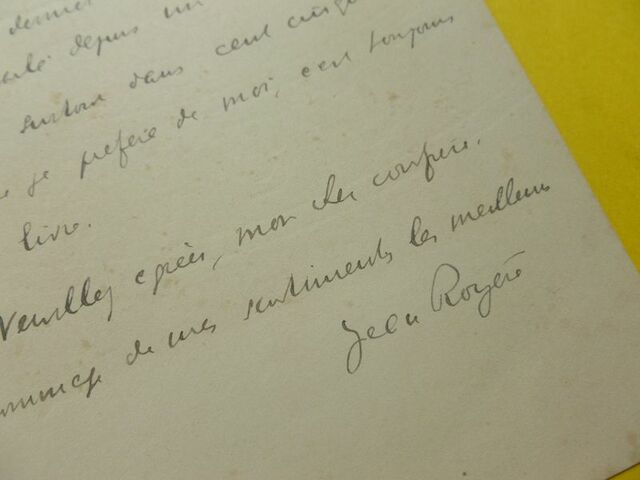 dernier
depuis un
surtout dans cent cinq
je préfère de moi, c'est toujours
livre.
Veuillez agréer, mon cher confrère,
hommage de mes sentiments les meilleurs
Jean Royère